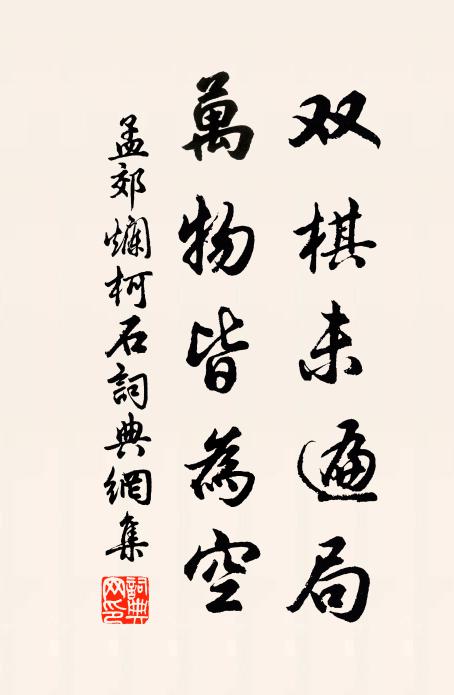 双棋未遍局
萬物皆為空
孟郊爛柯石詞典網集
詞典網印